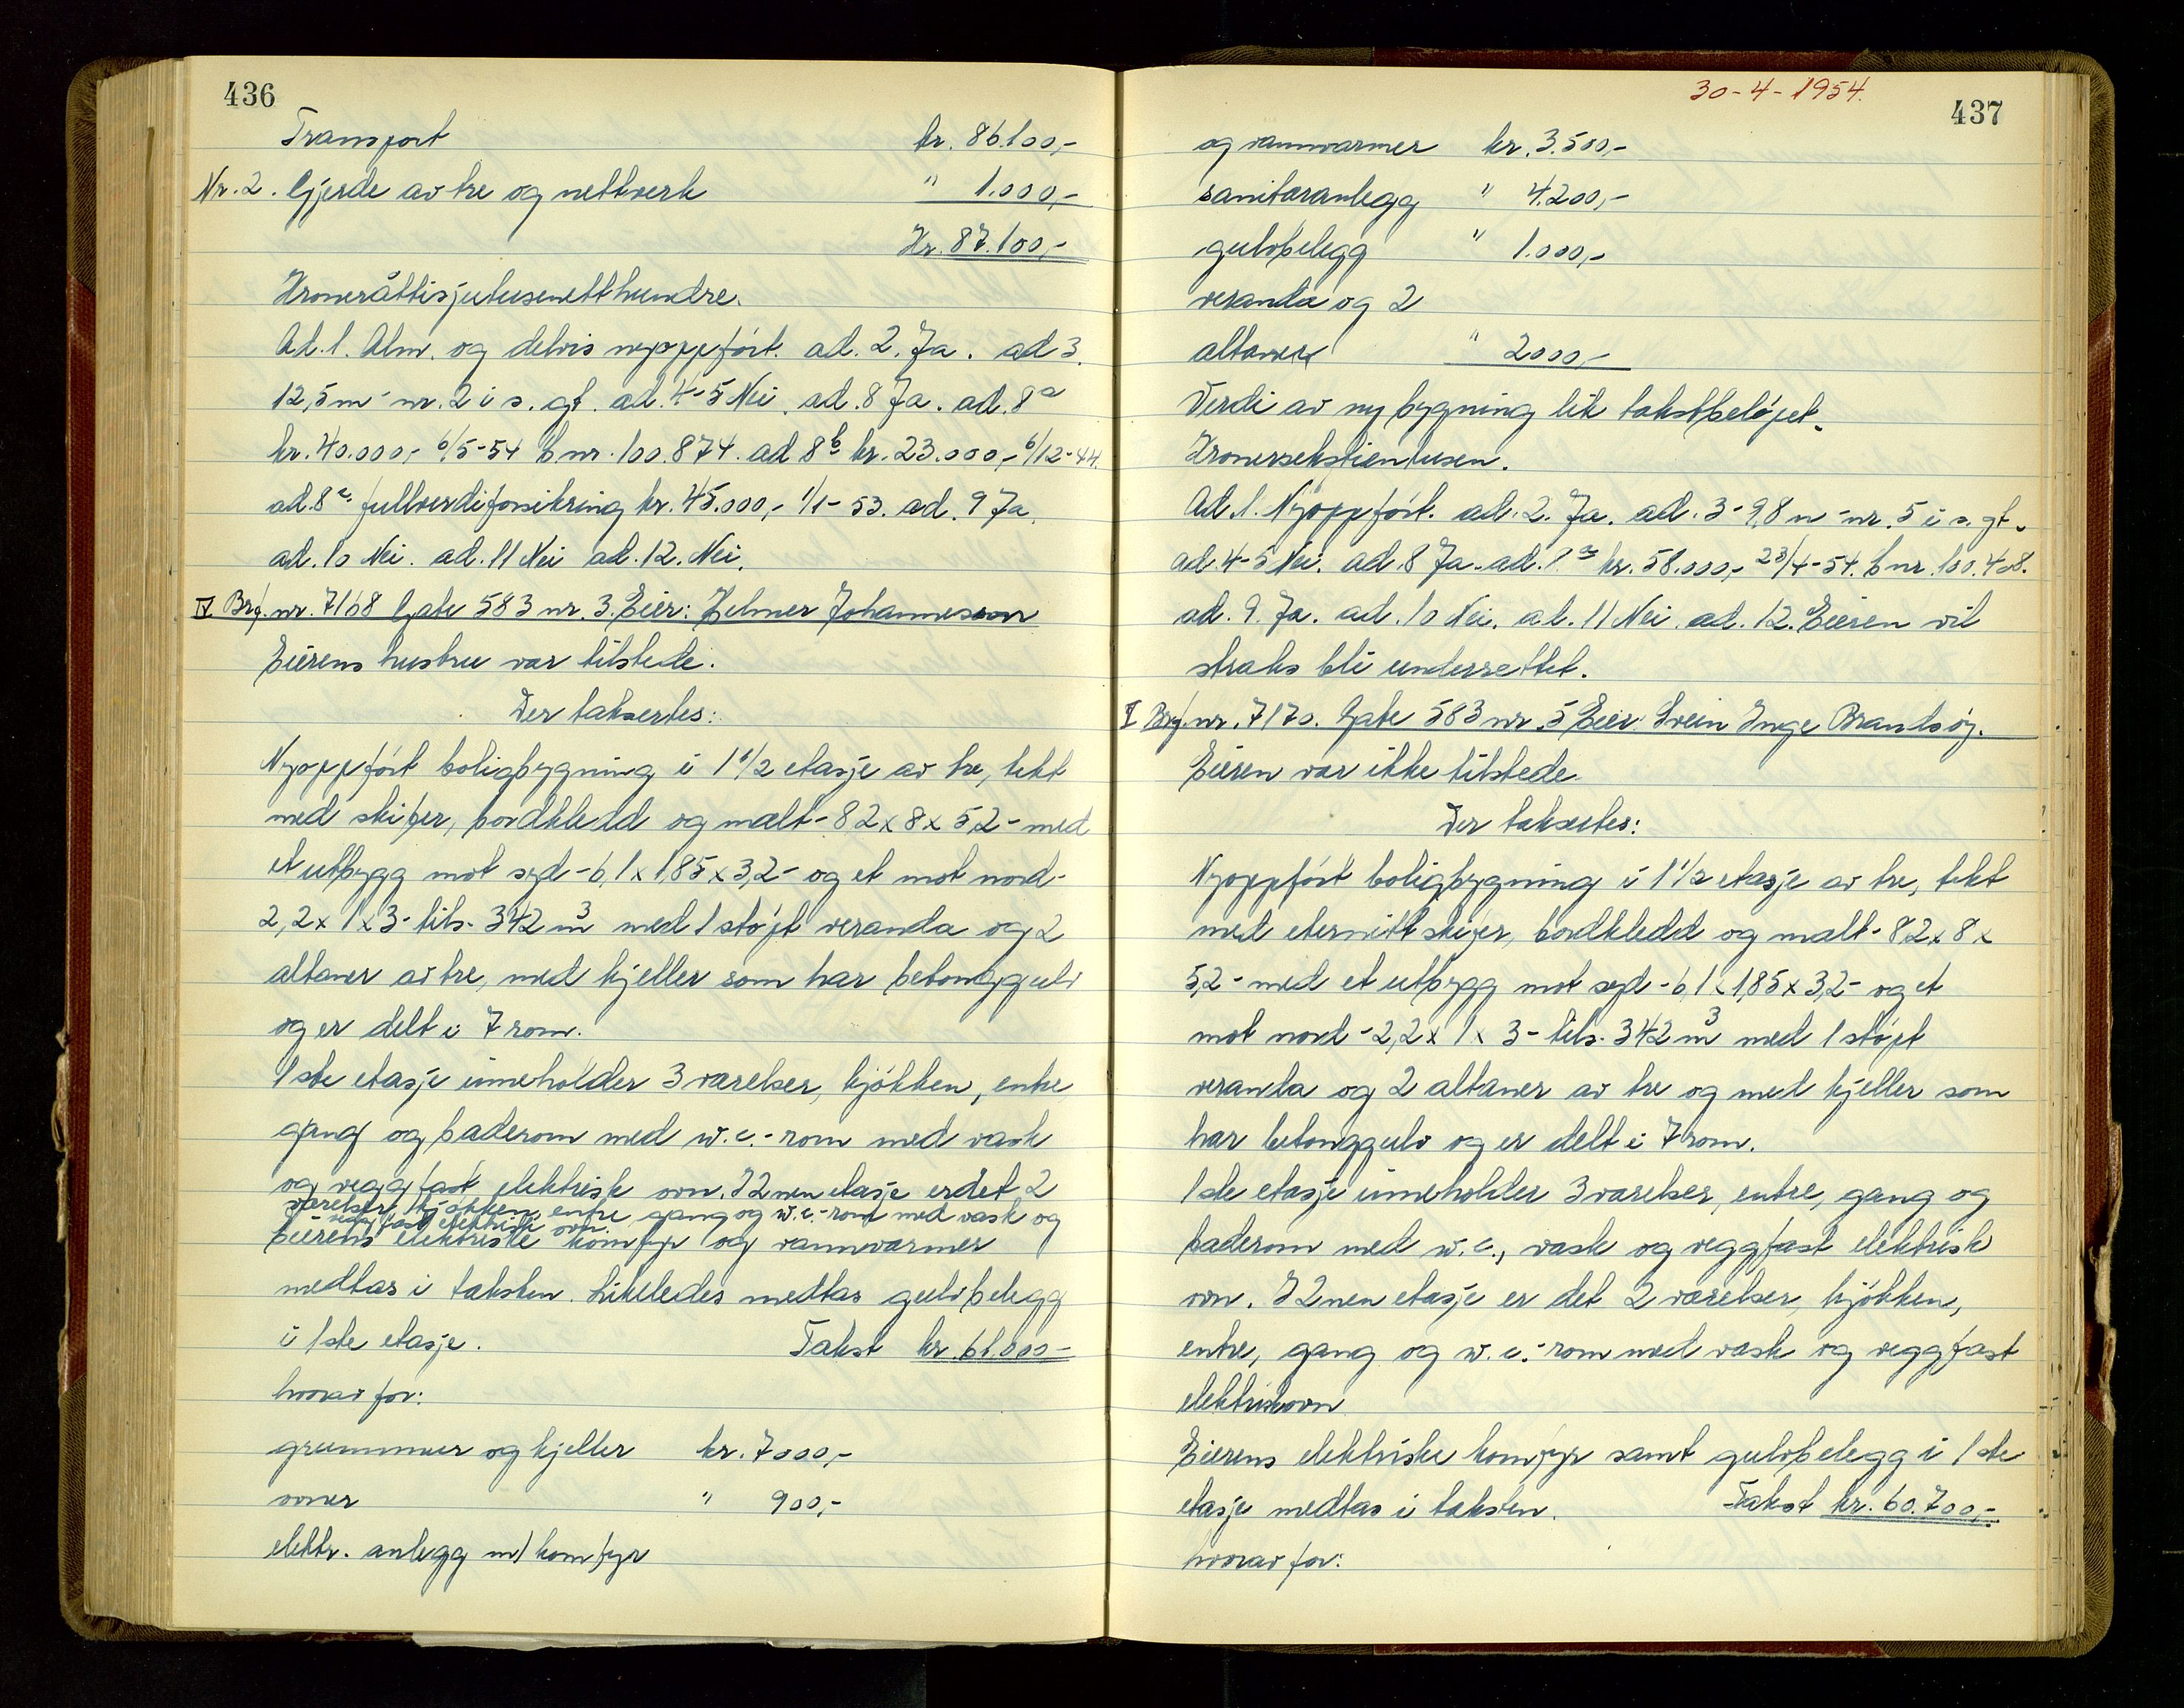 436
Transport kr. 86.100,-
Nr. 2. Gjerde av tre og nettverk " 1.000,-
Kr. 87.100,-
Kroneråttisjutusenetthundre.
Ad. 1. Alm. og delvis nyoppført. ad. 2. Ja. ad 3.
12,5 m - nr. 2 i s. gt. ad. 4-5 Nei. ad. 8 Ja. ad. 8a
kr. 40.000,- 6/5-54 b nr. 100.874. ad 8b kr. 23.000,- 6/12-44.
ad. 8c. fullverdiforsikring kr. 45.000,- 1/1-53. ad. 9 Ja.
ad. 10 Nei. ad. 11 Nei ad. 12. Nei.
IV Brf. nr. 7168 Gate 583 nr. 3. Eier: Helmer Johannesson
Eierens hustru var tilstede.
Der taksertes:
Nyoppført boligbygning i 1 1/2 etasje av tre, tekt
med skifer, bordkledd og malt - 8,2 x 8 x 5,2 - med
et utbygg mot syd - 6,1 x 1,85 x 3,2 - og et mot nord -
2,2 x 1 x 3 - tils. 342 m3 med 1 støpt veranda og 2
altaner av tre, med kjeller som har betonggulv
og er delt i 7 rom.
1ste etasje inneholder 3 værelser, kjøkken, entre
gang og baderom med w.c.-rom med vask
og veggfast elektrisk ovn. I 2nen etasje er det 2
værelser, kjøkken, entre gang og w.c.-rom med vask og
veggfast elektrisk ovn.
Eierens elektriske komfyr og vannvarmer
medtas i taksten. Likeledes medtas gulvbelegg
i 1ste etasje. Takst kr. 61.000-
hvorav for:
grunnmur og kjeller kr. 7000,-
ovner " 900,-
elektr. anlegg m/ komfyr
30-4-1954.
437
og vannvarmer kr. 3.500,-
sanitæranlegg " 4.200,-
gulvbelegg " 1.000,-
veranda og 2
altaner " 2000,-
Verdi av ny bygning lik takstbeløpet.
Kronersekstientusen.
Ad. 1. Nyoppført. ad. 2. Ja. ad. 3 - 9,8 m - nr. 5 i s. gt.
ad. 4-5 Nei. ad. 8 Ja. ad. 8a kr. 58.000,- 23/4-54. b nr. 100.408.
ad. 9. Ja. ad. 10 Nei. ad. 11 Nei. ad. 12. Eieren vil
straks bli underrettet.
V Brf. nr. 7170. Gate 583 nr. 5 Eier: Svein Inge Brandsøy.
Eieren var ikke tilstede
Der taksertes:
Nyoppført boligbygning i 1 1/2 etasje av tre, tekt
med eternittskifer, bordkledd og malt - 8,2 x 8 x
5,2 - med et utbygg mot syd - 6,1 x 1,85 x 3,2 - og et
mot nord - 2,2 x 1 x 3 - tils. 342 m3 med 1 støpt
veranda og 2 altaner av tre og med kjeller som
har betonggulv og er delt i 7 rom.
1ste etasje inneholder 3 værelser, entre, gang og
baderom med w.c., vask og veggfast elektrisk
ovn. I 2nen etasje er det 2 værelser, kjøkken,
entre, gang og w.c.-rom med vask og veggfast
elektriskovn
Eierens elektriske komfyr samt gulvbelegg i 1ste
etasje medtas i taksten. Takst kr. 60.700,-
hvorav for: